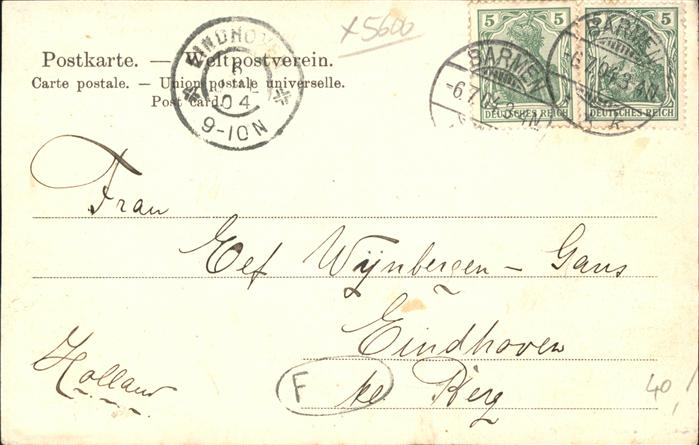 x 5600
Postkarte. — Weltpostverein.
Carte postale. — Union postale universelle.
Post card.
EINDHOVEN
6
04
9-10N
5 5
BARMEN
6.7.04.
DEUTSCHES REICH
5 5
BARMEN
6.7.04.
DEUTSCHES REICH
Frau
Eef Wijnbergen - Gans
Eindhoven
Holland
F
Berg
40